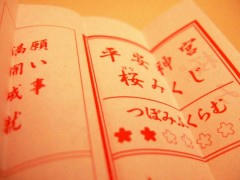 平安神宮
桜みくじ
つぼみふくらむ
願い事
満開成就